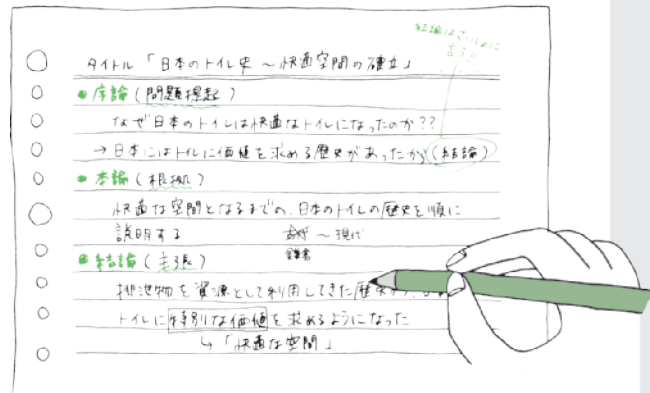 結論はさいしょに
言う!!
タイトル「日本のトイレ史 ~快適空間の確立」
● 序論(問題提起)
なぜ日本のトイレは快適なトイレになったのか??
→日本にはトイレに価値を求める歴史があったから(結論)
● 本論(根拠)
快適な空間となるまでの、日本のトイレの歴史を順に
説明する ~現代
鎌倉
● 結論(主張)
排泄物を資源として利用してきた歴史から、
トイレに特別な価値を求めるようになった
↳「快適な空間」